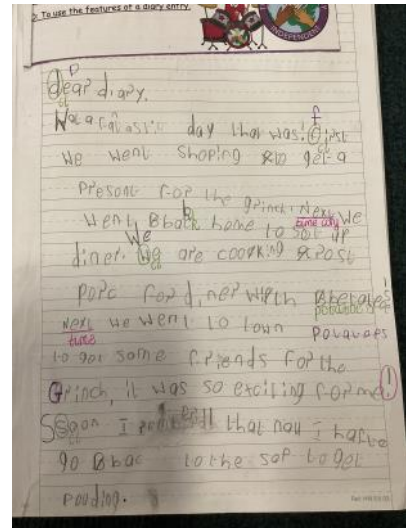 2. To use the features of a diary entry.
INDEPENDENT
Dear diary,
Wat a fatastic day that was! first
we went shoping to get a
Present for the grinch. Next we
went back home to set up
diner. We are coocking rost
porc for diner with
potatoes
Next we went to town potatoes
time
to get some friends for the
Grinch, it was so exciting for me!
Soon I that now I hafto
go bac to the sop to get
pouding.